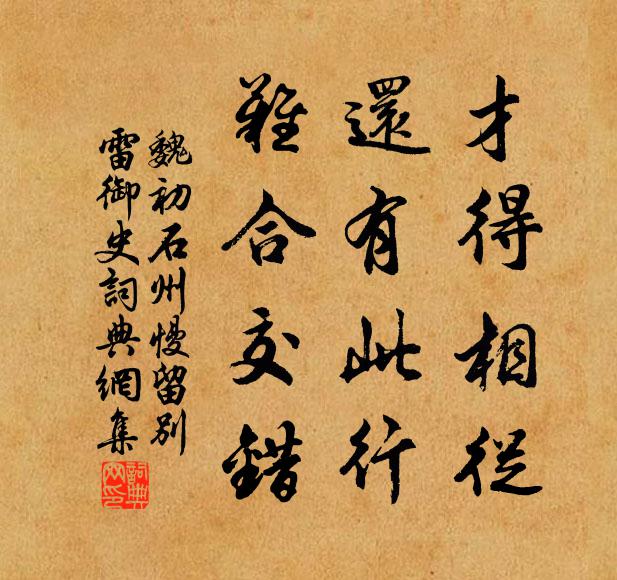 才得相從
還有此行
難合交錯
魏初石州慢留別
雷御史詞典網集
詞典網印